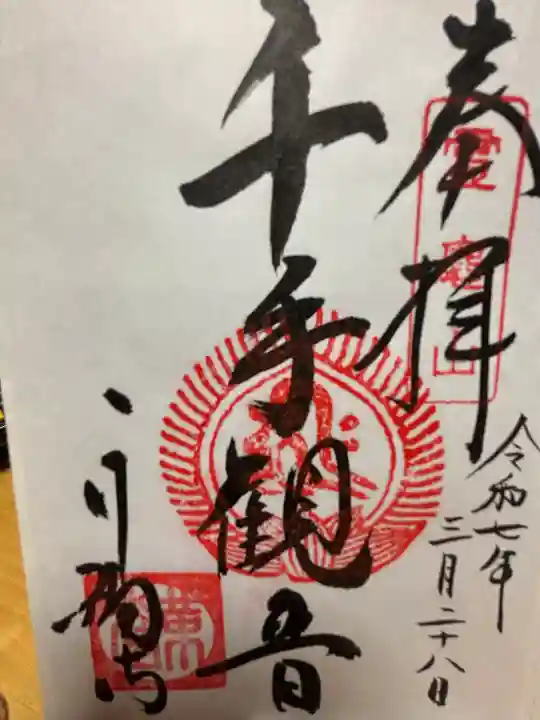 奉拝
霊亀山
令和七年
三月二十八日
千手観音